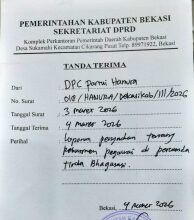 PEMERINTAH KABUPATEN BEKASI
SEKRETARIAT DPRD
Komplek Perkantoran Pemerintah Daerah Kabupaten Bekasi
Desa Sukamahi Kecamatan Cikarang Pusat Telp. 89971922, Bekasi
TANDA TERIMA
Dari DPC Partai Hanura
No. Surat 018/HANURA/DPC.Kab.Bks/III/2026
Tanggal Surat 3 maret 2026
Tanggal Terima 4 maret 2026
Perihal laporan pengaduan tentang
rekrutmen pegawai di perumda
Tirta Bhagasasi.
Bekasi, 4 maret 2026